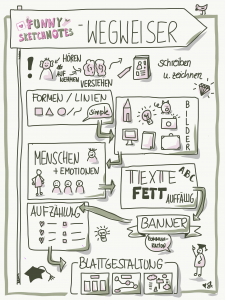 FUNNY
SKETCHNOTES
- WEGWEISER
!
HÖREN
AUFNEHMEN
VERSTEHEN
schreiben
u. zeichnen
FORMEN / LINIEN
simple
BILDER
MENSCHEN
+ EMOTIONEN
TEXTE ABC
FETT
AUFFÄLLIG
AUFZÄHLUNG
BANNER
BLATTGESTALTUNG